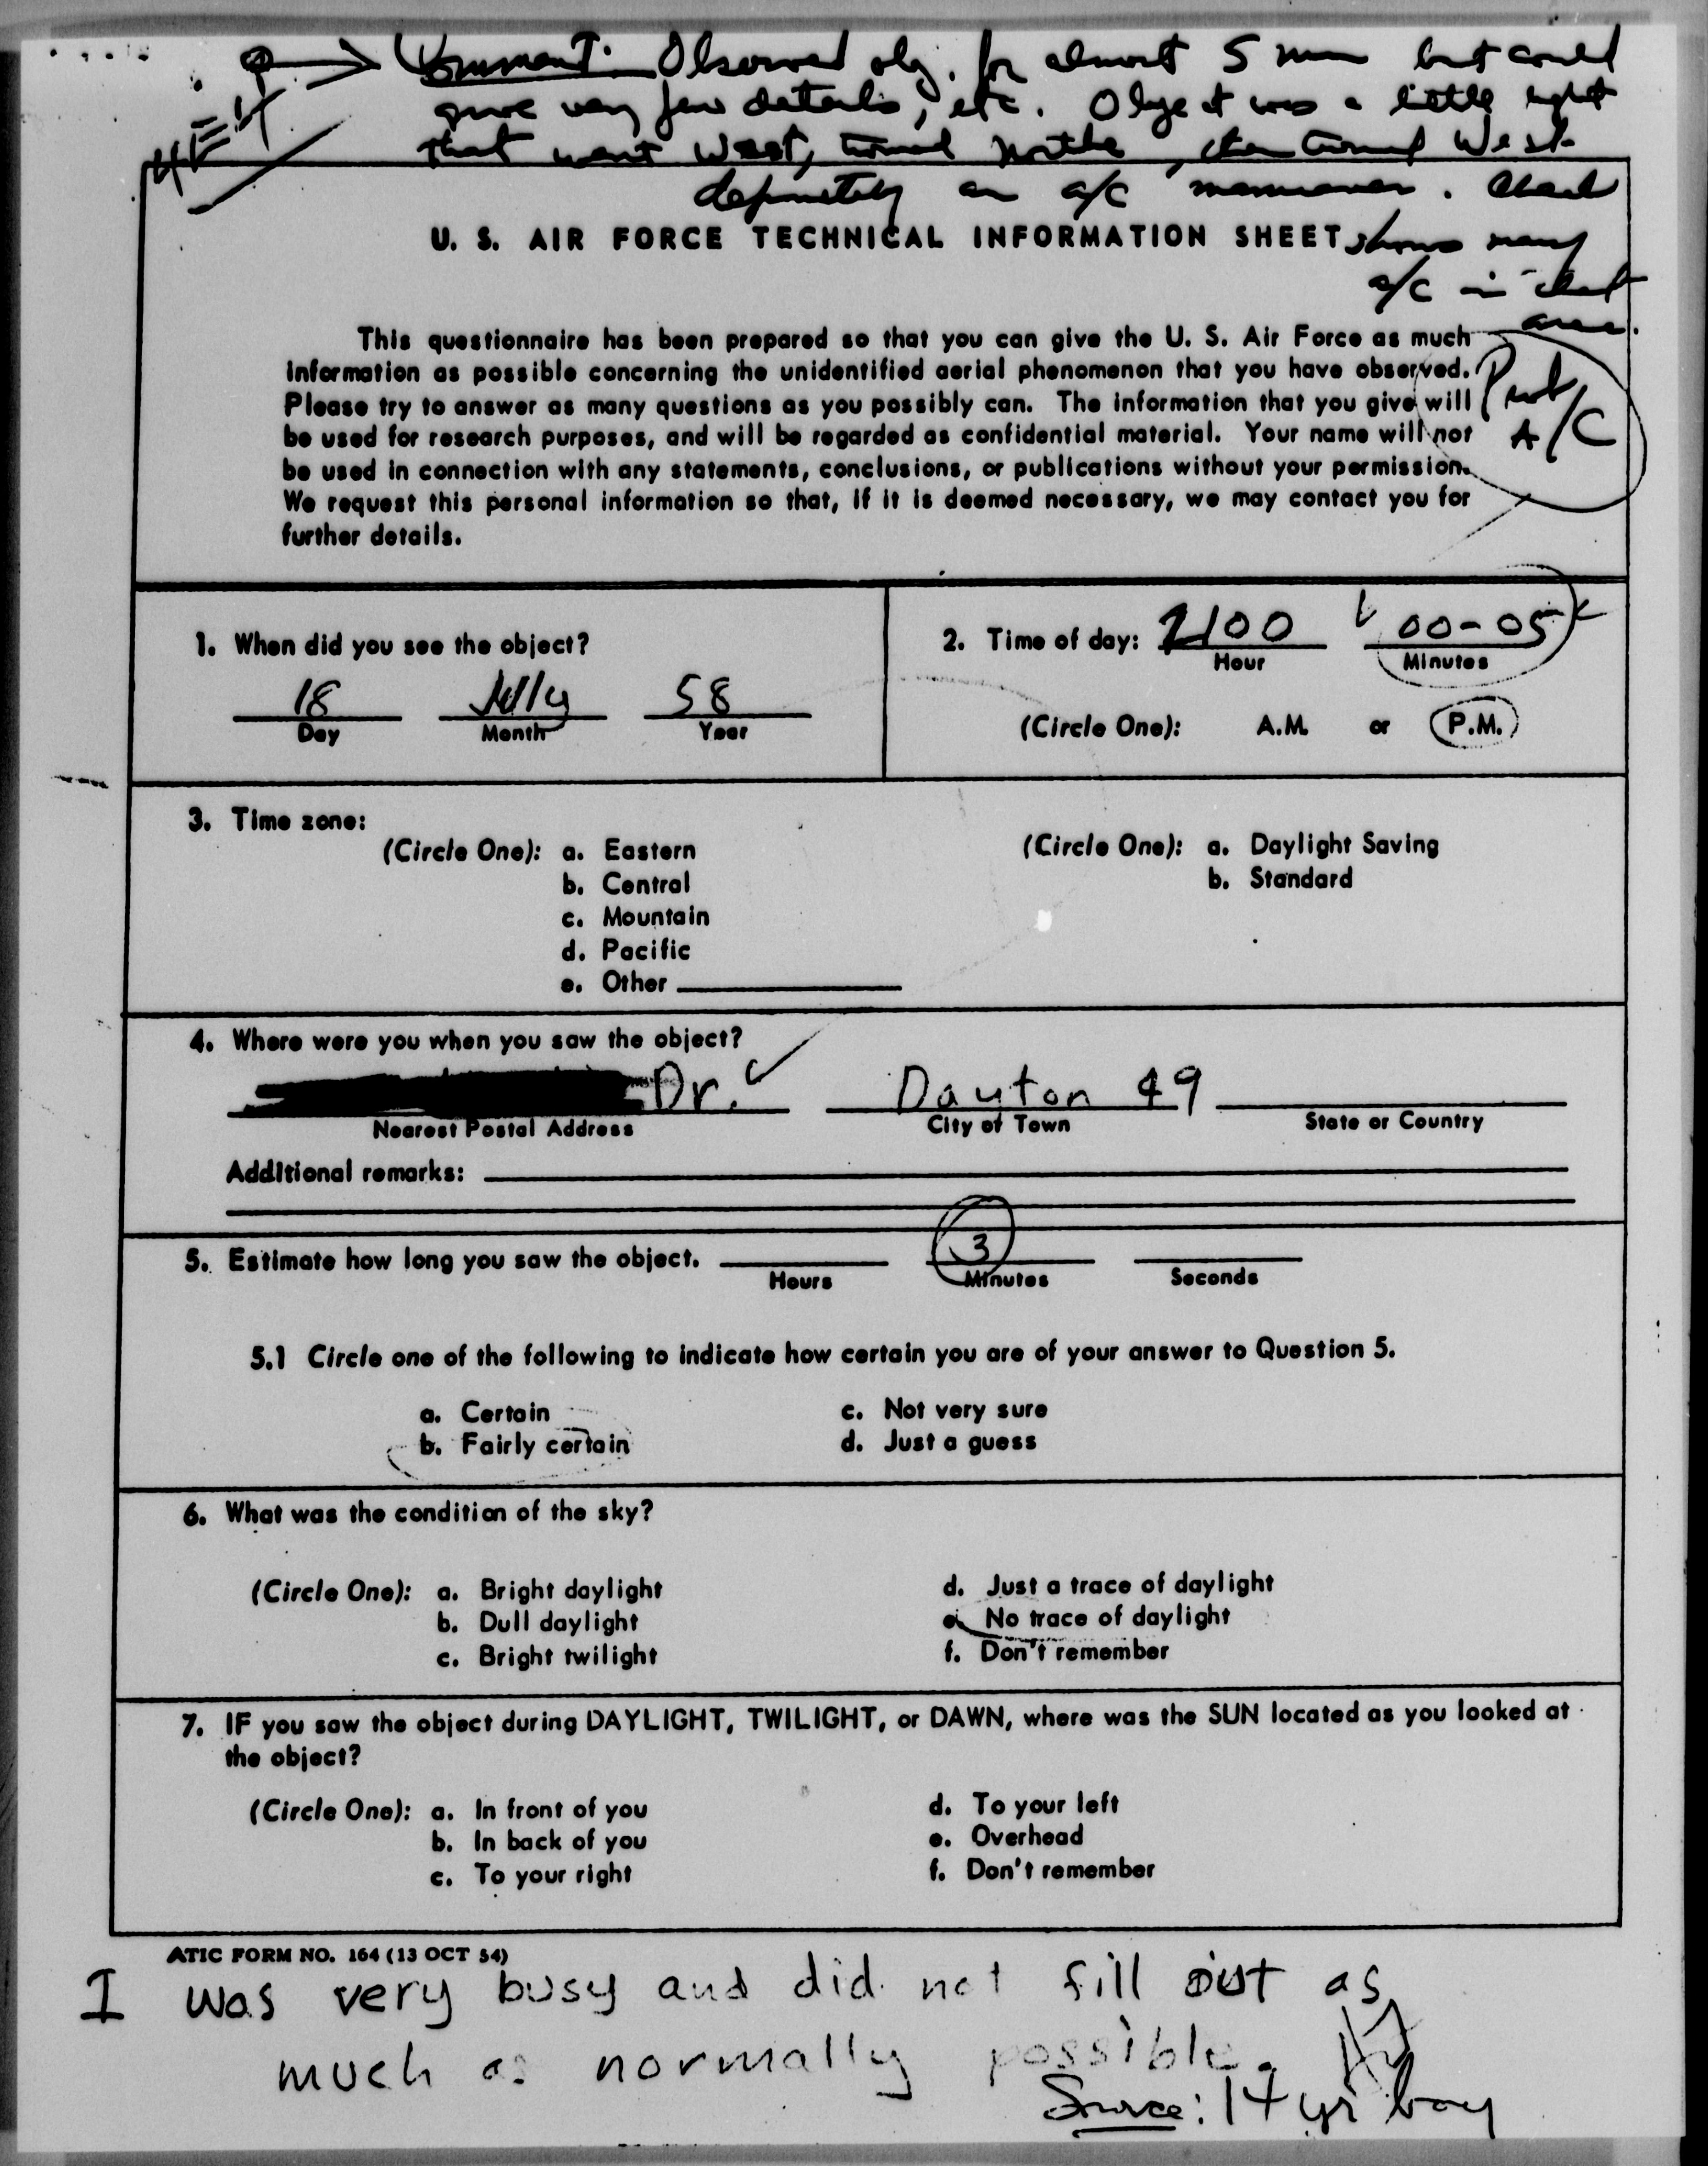 Comment: Observed obj. for almost 5 min but could
give very few details, etc. Object was a little light
that went West, turned North, then turned West
definitely an a/c maneuver. Check
U. S. AIR FORCE TECHNICAL INFORMATION SHEET shows many
a/c in that
area.
This questionnaire has been prepared so that you can give the U. S. Air Force as much
information as possible concerning the unidentified aerial phenomenon that you have observed.
Please try to answer as many questions as you possibly can. The information that you give will
be used for research purposes, and will be regarded as confidential material. Your name will not
be used in connection with any statements, conclusions, or publications without your permission.
We request this personal information so that, if it is deemed necessary, we may contact you for
further details.
A/C
1. When did you see the object?
18 July 58
Day Month Year
2. Time of day: 2100 00-05
Hour Minutes
(Circle One): A.M. or P.M.
3. Time zone:
(Circle One): a. Eastern
b. Central
c. Mountain
d. Pacific
e. Other
(Circle One): a. Daylight Saving
b. Standard
4. Where were you when you saw the object?
Dr. Dayton 49
Nearest Postal Address City or Town State or Country
Additional remarks:
5. Estimate how long you saw the object. 3
Hours Minutes Seconds
5.1 Circle one of the following to indicate how certain you are of your answer to Question 5.
a. Certain c. Not very sure
b. Fairly certain d. Just a guess
6. What was the condition of the sky?
(Circle One): a. Bright daylight d. Just a trace of daylight
b. Dull daylight e. No trace of daylight
c. Bright twilight f. Don't remember
7. IF you saw the object during DAYLIGHT, TWILIGHT, or DAWN, where was the SUN located as you looked at
the object?
(Circle One): a. In front of you d. To your left
b. In back of you e. Overhead
c. To your right f. Don't remember
ATIC FORM NO. 164 (13 OCT 54)
I was very busy and did not fill out as
much as normally possible.
Source: 14 yr boy